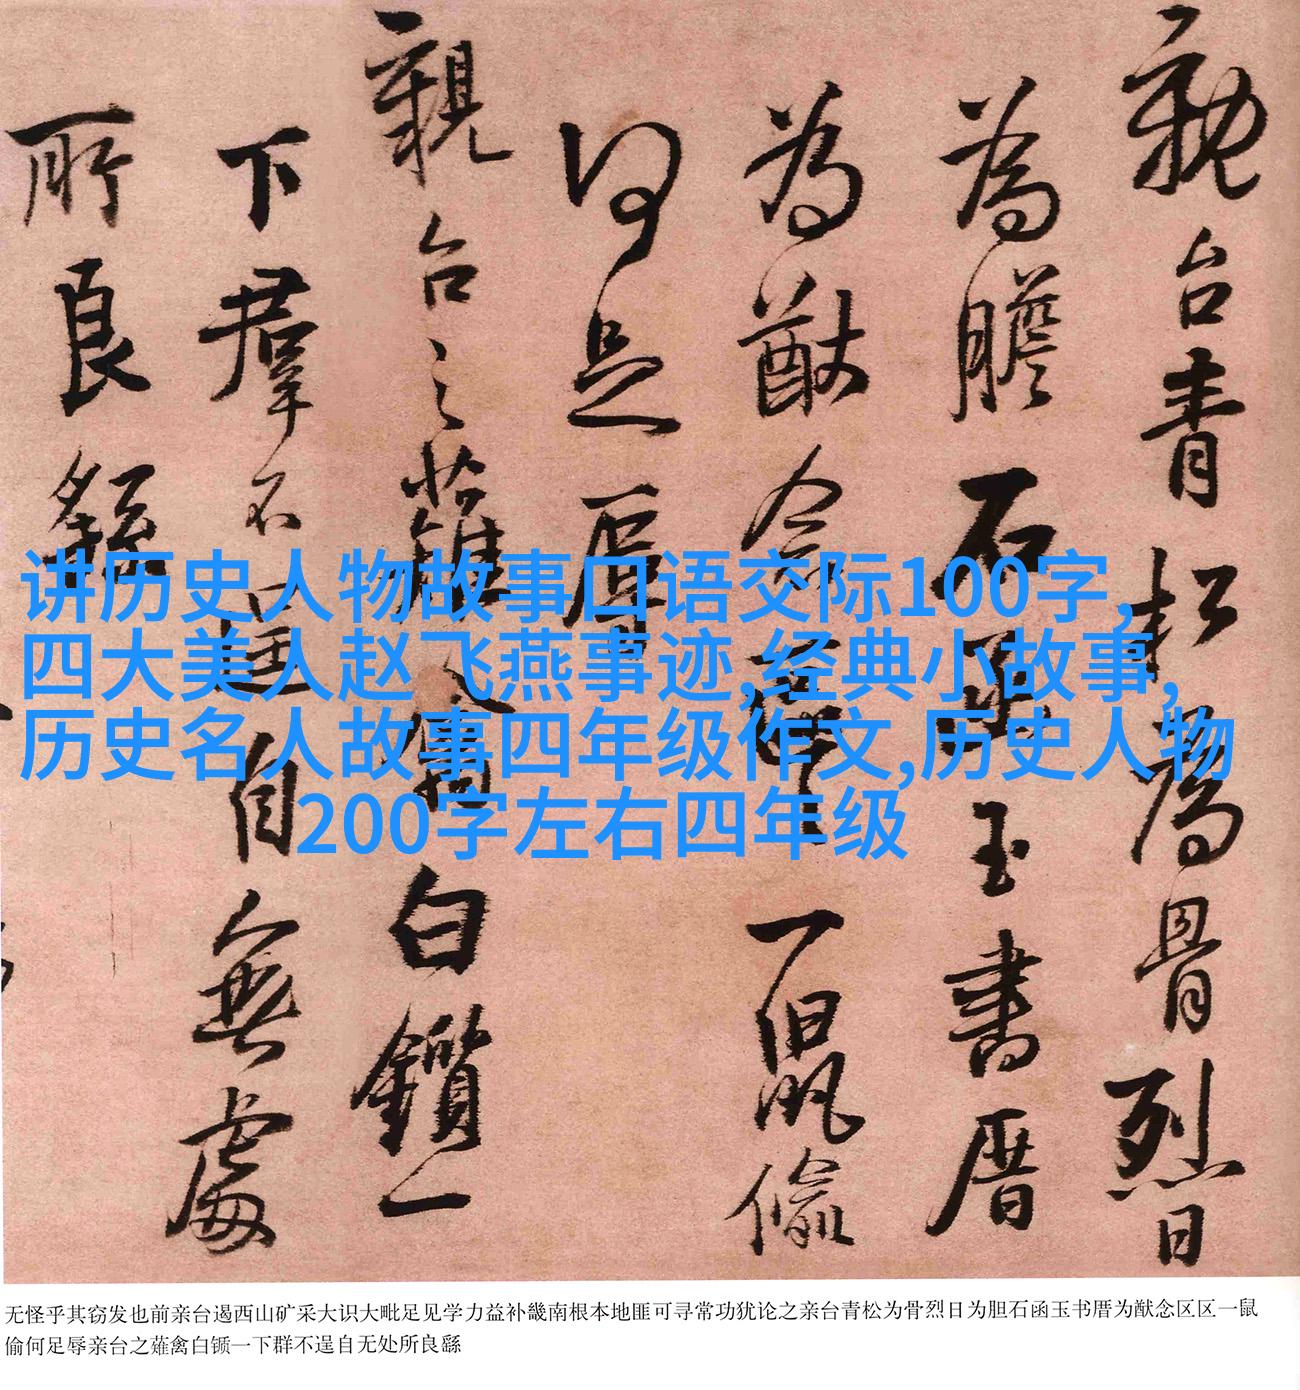 親台青松為骨烈日
為膽石函玉書厝
為猷念區區一鼠偷
何足辱
親台之薙禽白鑕一
下羣不逞自無處
所良繇
讲历史人物故事口语交际100字,
四大美人赵飞燕事迹,经典小故事,
历史名人故事四年级作文,历史人物
200字左右四年级
无怪乎其窃发也前亲台遏西山矿采大识大毗足见学力益补畿南根本地匪可寻常功犹论之亲台青松为骨烈日为胆石函玉书厝为猷念区区一鼠
偷何足辱亲台之薙禽白锧一下群不逞自无处所良繇